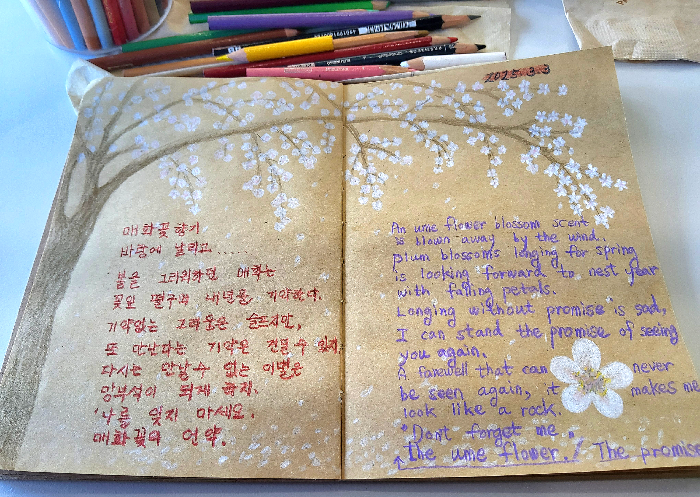 2025.3.3
매화꽃향기
바람에 날리고......
봄을 그리워하던 매화는
꽃잎 떨구며 내년을 기약한다.
기약없는 그리움은 슬프지만,
또 만난다는 기약은 견딜 수 있지
다시는 만날 수 없는 이별은
망부석이 되게 하지.
'나를 잊지 마세요.
매화꽃의 언약.
An ume flower blossom scent
is blown away by the wind.
plum blossoms longing for spring
is looking forward to nest year
with falling petals.
Longing without promise is sad,
I can stand the promise of seeing
you again.
A farewell that can never
be seen again, it makes me
look like a rock.
"Dont forget me.
The ume flower. / The promise